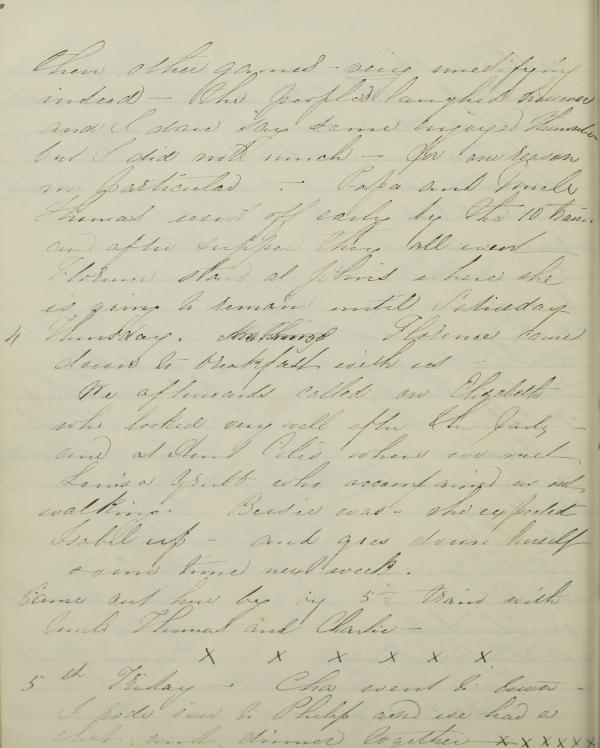 then other games - very unedifying
indeed - The people laughed however
and I dare say some enjoyed themselves
but I did not much - for one reason
in particular - Papa and Uncle
Thomas went off early by the 10 train
and after supper they all went
Florence staid at John's where she
is going to remain until Saturday
4 Thursday. Florence came
down to breakfast with us -
We afterwards called on Elizabeth
who looked very well after the party -
and at where we met
Louisa Grubb who accompanied us out
walking. Bessie was - she expected
Isabel up - and goes down herself
some time next week.
Came out here by 5½ train with
Uncle Thomas and Charlie -
x x x x x x
5th Friday - Cha went to town -
I rode over to Philip and we had a
chat and dinner together x x x x x x